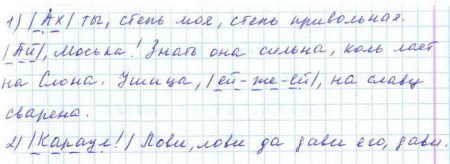 1) |Ах| ты, степь моя, степь привольная.
|Ай|, Моська! Знать она сильна, коль лает
на Слона. Ушица, |ей-же-ей|, на славу
сварена.
2) |Караул!| Лови, лови да дави его, дави.